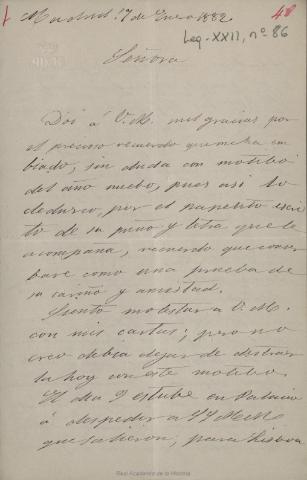 Madrid 17 de Enero 1882.
48
Leg. XXII, nº 86
Señora
Doi á V. M. mil gracias por
el precioso recuerdo que me ha em
biado, sin duda con motibo
del año nuebo, pues asi lo
deduzco, por el papelito escri
to de su puño y letra que le
acompaña, recuerdo que conser
baré como una prueba de
su cariño y amistad.
Siento molestar a V. M.
con mis cartas; pero no
creo debia dejar de
la hoy con este motibo.
El dia 9 estube en Palacio
á despedir a SS MM
que salieron, para Lisboa
Real Academia de la Historia